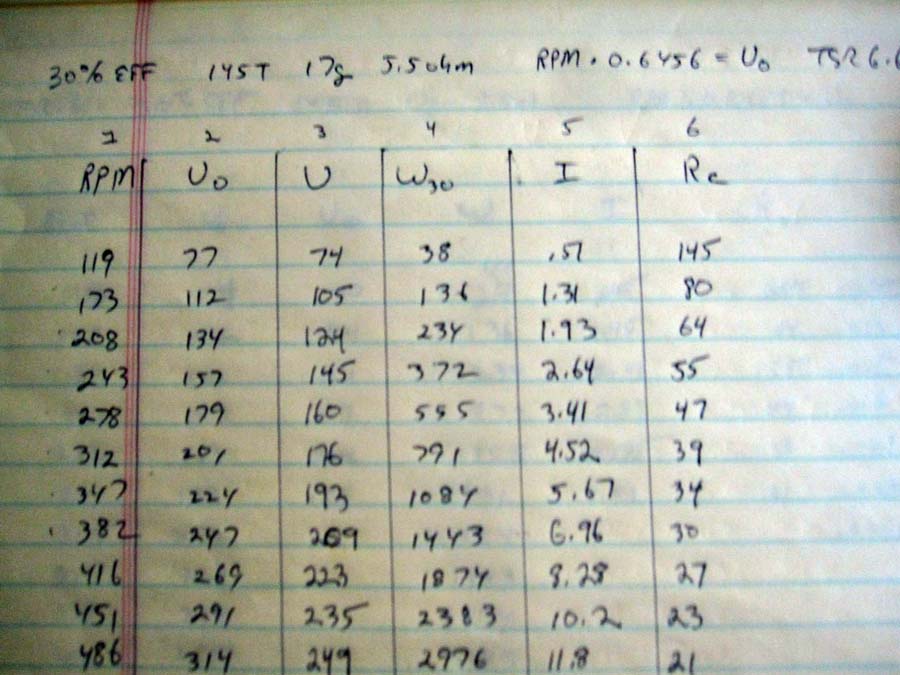 30% EFF 145T 17g 5.5 ohm RPM · 0.6456 = U0 TSR 6.6
1 2 3 4 5 6
RPM U0 U W30 I Rc
119 77 74 38 .51 145
173 112 105 136 1.31 80
208 134 124 234 1.93 64
243 157 145 372 2.64 55
278 179 160 555 3.41 47
312 201 176 791 4.52 39
347 224 193 1084 5.67 34
382 247 209 1443 6.96 30
416 269 223 1874 8.28 27
451 291 235 2383 10.2 23
486 314 249 2976 11.8 21